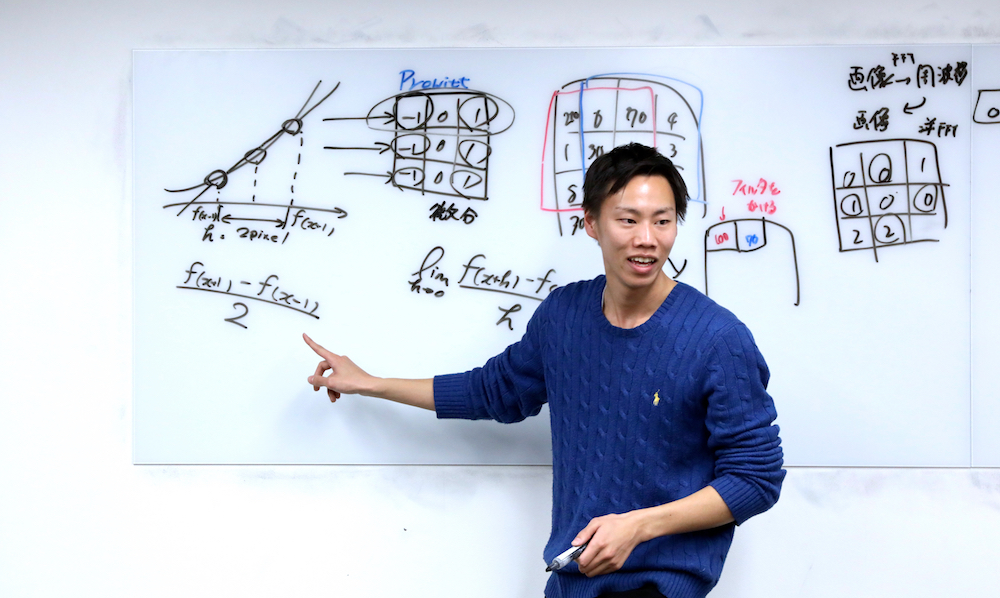 f(x-1)
f(x-1)
h = 2pixel
f(x+1) - f(x-1)
2
Prewitt
-1 0 1
-1 0 1
-1 0 1
微分
lim
h→0
f(x+h) - f(
h
6 70 4
1 30 3
8
フィルタを
かける
100 90
FFT
画像→周波数
画像
逆FFT
0 0 1
1 0 0
2 2
0